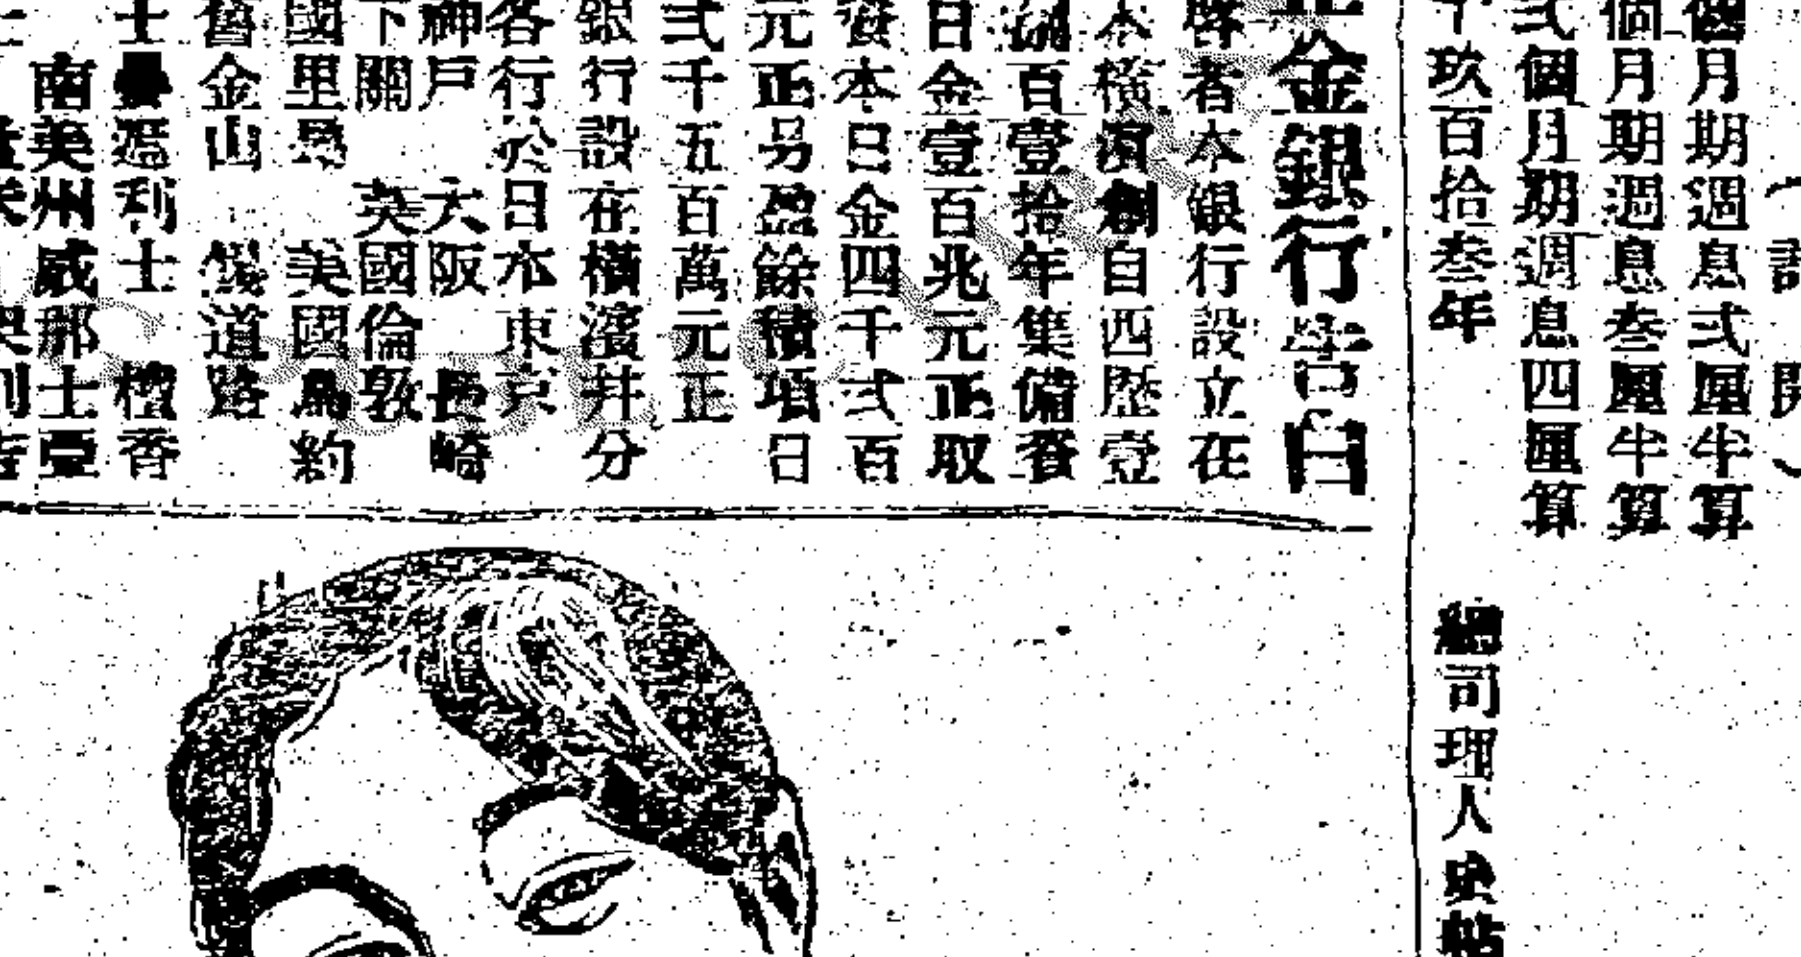 開
個月期週息弍厘半算
個月期週息叁厘半算
弍個月期週息四厘算
千玖百拾叁年
總司理人
金銀行告白
啓者本銀行設立在
本橫濱創自西歷壹
百壹拾年集備資
日金壹百兆元正取
資本日金四千弍百
元正另盈餘積項日
弍千五百萬元正
銀行設在橫濱并分
各行於日本東京
神戶 大阪 長崎
下關 英國倫敦
國里昂 美國鳥約
舊金山 錢道路
士曼遞利士 檀香
南美州威那士亞